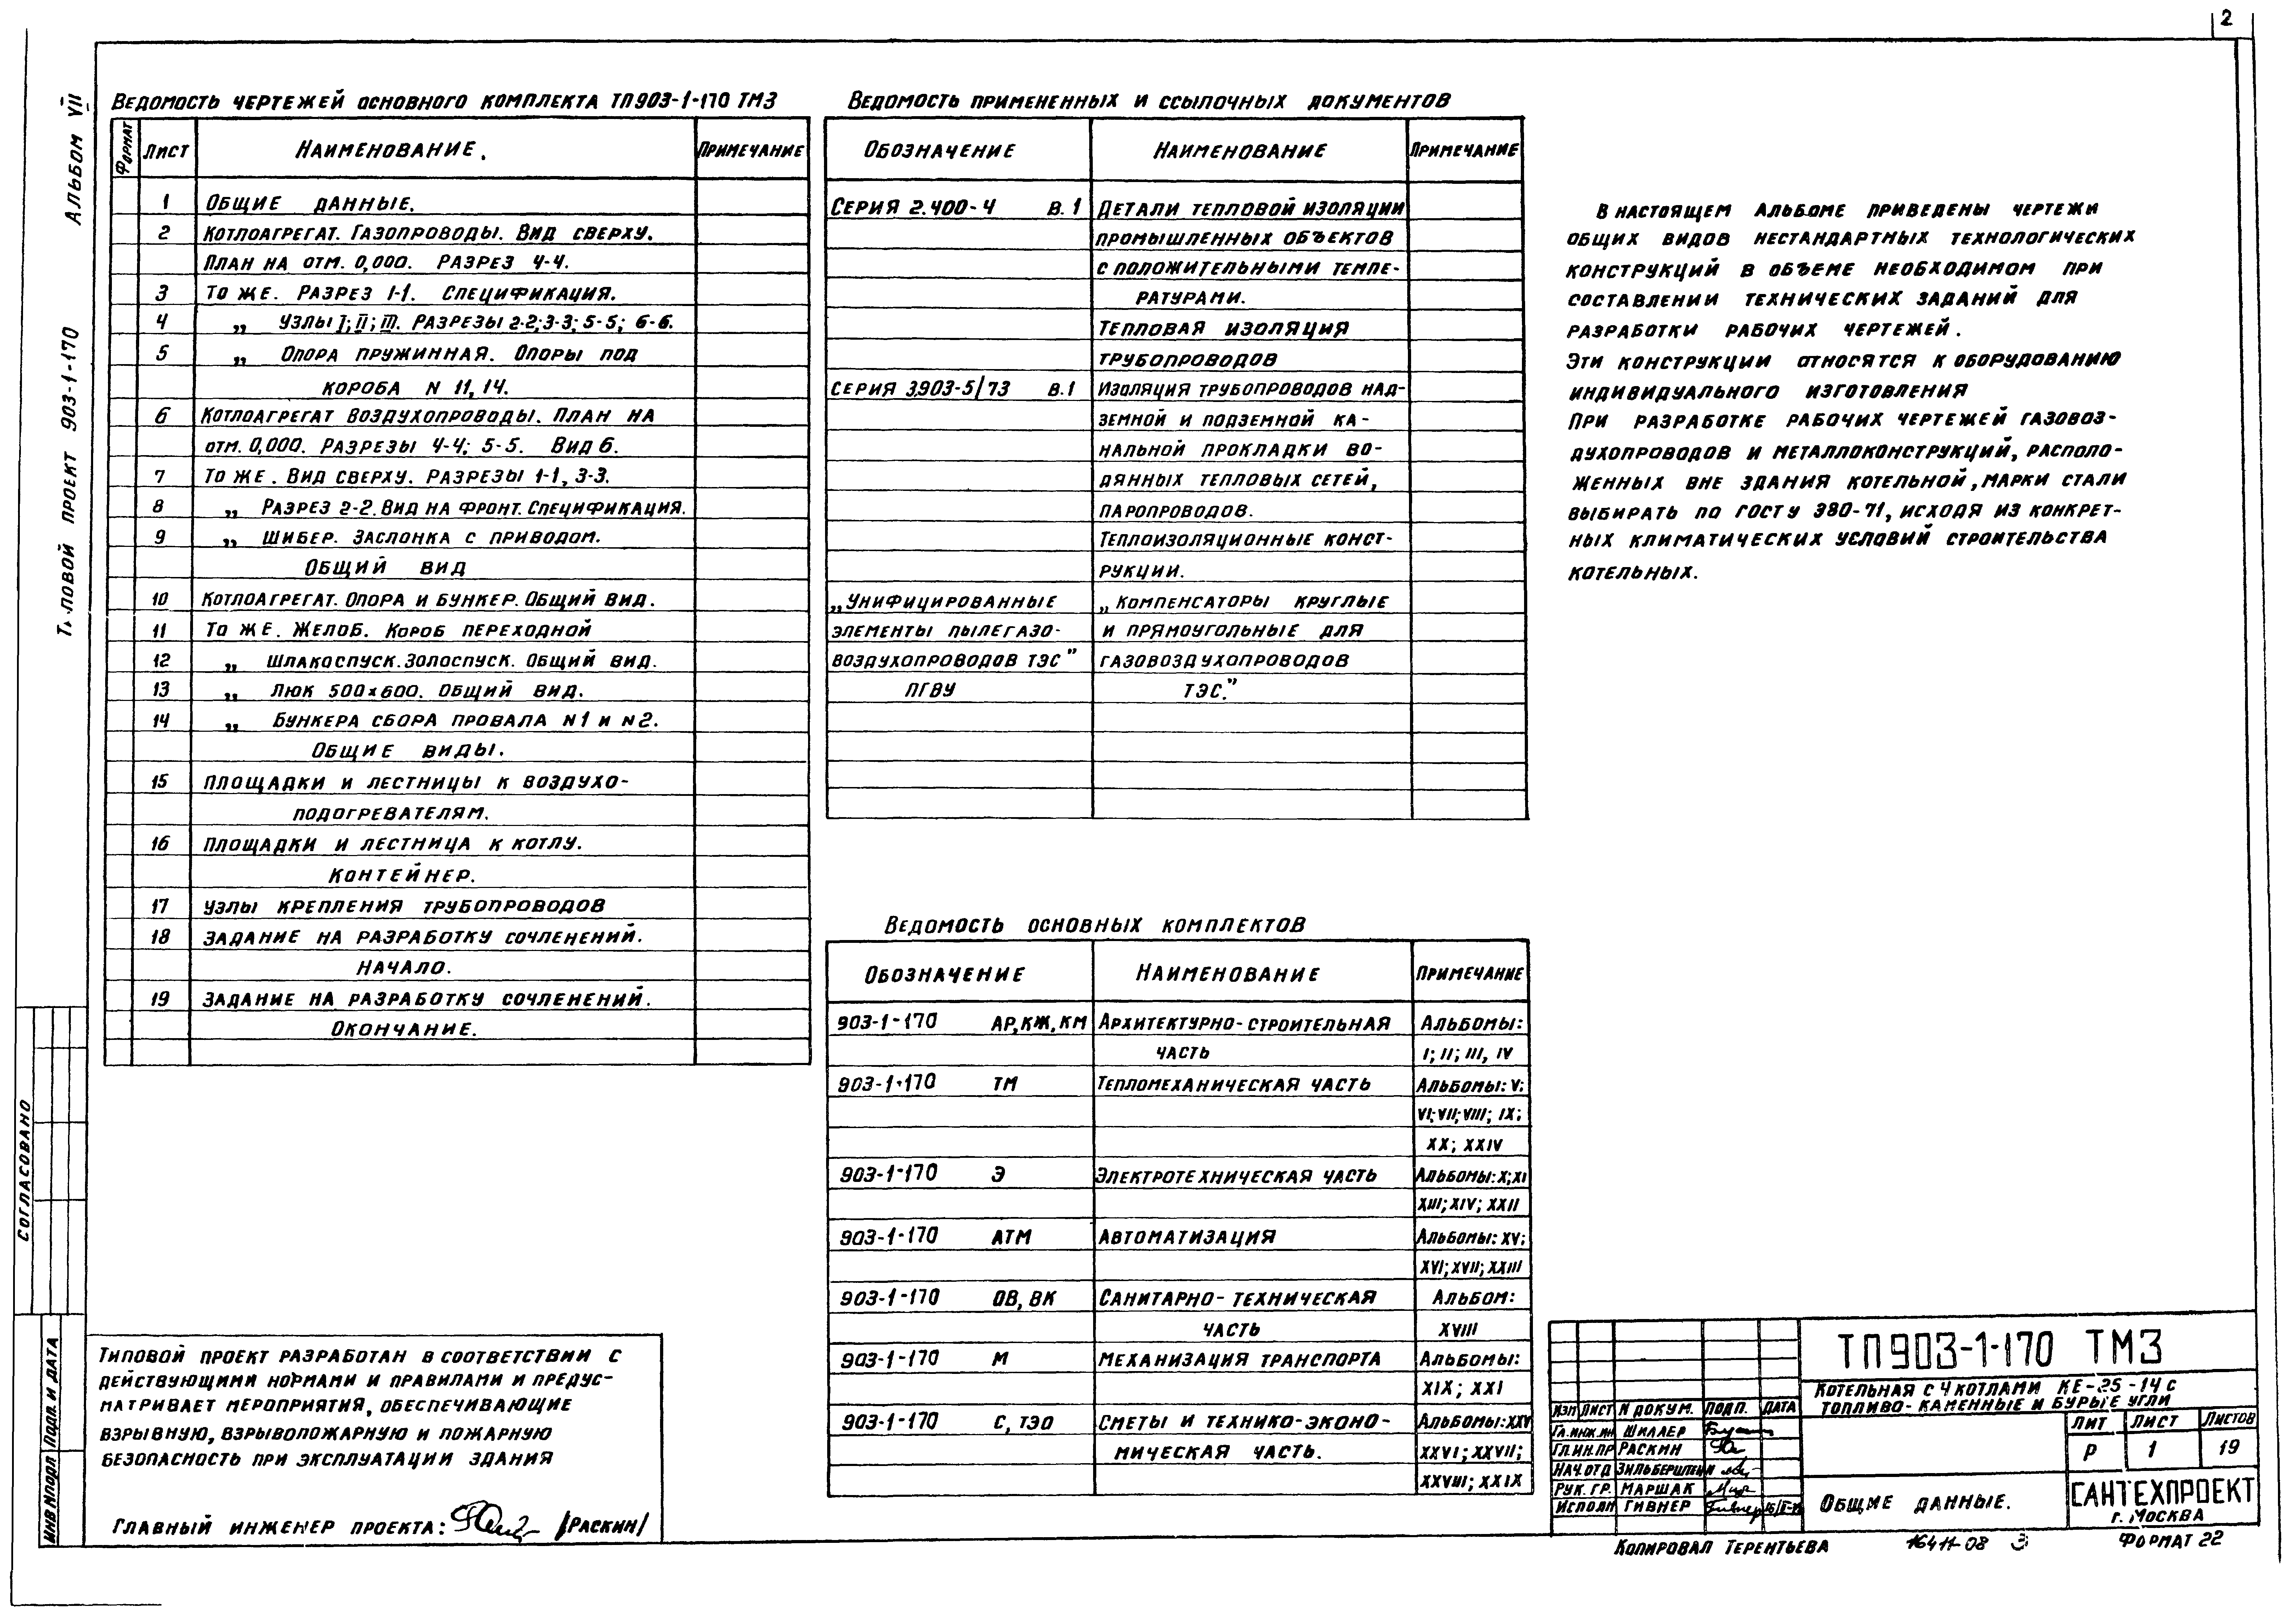 2
Альбом VII
ловой проект 903-1-170
Ведомость чертежей основного комплекта ТП903-1-170 ТМ3
Формат Лист Наименование. Примечание
1 Общие данные.
2 Котлоагрегат. Газопроводы. Вид сверху.
План на отм. 0,000. Разрез 4-4.
3 То же. Разрез 1-1. Спецификация.
4 „ Узлы I; II; III. Разрезы 2-2; 3-3; 5-5; 6-6.
5 „ Опора пружинная. Опоры под
короба N 11, 14.
6 Котлоагрегат воздухопроводы. План на
отм. 0,000. Разрезы 4-4; 5-5. Вид б.
7 То же. Вид сверху. Разрезы 1-1, 3-3.
8 „ Разрез 2-2. Вид на фронт. Спецификация.
9 „ Шибер. Заслонка с приводом.
Общий вид
10 Котлоагрегат. Опора и бункер. Общий вид.
11 То же. Желоб. Короб переходной
12 „ Шлакоспуск. Золоспуск. Общий вид.
13 „ Люк 500х600. Общий вид.
14 „ Бункера сбора провала N1 и N2.
Общие виды.
15 Площадки и лестницы к воздухо-
подогревателям.
16 Площадки и лестница к котлу.
Контейнер.
17 Узлы крепления трубопроводов
18 Задание на разработку сочленений.
Начало.
19 Задание на разработку сочленений.
Окончание.
Ведомость примененных и ссылочных документов
Обозначение Наименование Примечание
Серия 2.400-4 В.1 Детали тепловой изоляции
промышленных объектов
с положительными темпе-
ратурами.
Тепловая изоляция
трубопроводов
Серия 3.903-5/73 В.1 Изоляция трубопроводов над-
земной и подземной ка-
нальной прокладки во-
дянных тепловых сетей,
паропроводов.
Теплоизоляционные конст-
рукции.
„Унифицированные „Компенсаторы круглые
элементы пылегазо- и прямоугольные для
воздухопроводов ТЭС" газовоздухопроводов
ПГВУ ТЭС."
Ведомость основных комплектов
Обозначение Наименование Примечание
903-1-170 АР, КЖ, КМ Архитектурно-строительная Альбомы:
часть I; II; III, IV
903-1-170 ТМ Тепломеханическая часть Альбомы: V;
VI; VII; VIII; IX;
XX; XXIV
903-1-170 Э Электротехническая часть Альбомы: X; XI
XIII; XIV; XXII
903-1-170 АТМ Автоматизация Альбомы: XV;
XVI; XVII; XXIII
903-1-170 ОВ, ВК Санитарно-техническая Альбом:
часть XVIII
903-1-170 М Механизация транспорта Альбомы:
XIX; XXI
903-1-170 С, ТЭО Сметы и технико-эконо- Альбомы: XXV
мическая часть. XXVI; XXVII;
XXVIII; XXIX
В настоящем альбоме приведены чертежи
общих видов нестандартных технологических
конструкций в объеме необходимом при
составлении технических заданий для
разработки рабочих чертежей.
Эти конструкции относятся к оборудованию
индивидуального изготовления
При разработке рабочих чертежей газовоз-
духопроводов и металлоконструкций, располо-
женных вне здания котельной, марки стали
выбирать по ГОСТу 380-71, исходя из конкрет-
ных климатических условий строительства
котельных.
Согласовано
Подп. и дата
Инв N подл
Типовой проект разработан в соответствии с
действующими нормами и правилами и предус-
матривает мероприятия, обеспечивающие
взрывную, взрывопожарную и пожарную
безопасность при эксплуатации здания
Главный инженер проекта: /Раскин/
ТП903-1-170 ТМ3
Котельная с 4 котлами КЕ-25-14с
Топливо-каменные и бурые угли
Изм Лист N докум. Подп. Дата Лит Лист Листов
Гл.инж.ин Шиллер
Гл.ин.пр Раскин Р 1 19
Нач.отд Зильберштейн
Рук. гр. Маршак
Исполн Гивнер
Общие данные.
САНТЕХПРОЕКТ
г. Москва
Копировал Терентьева 16411-08 3 Формат 22